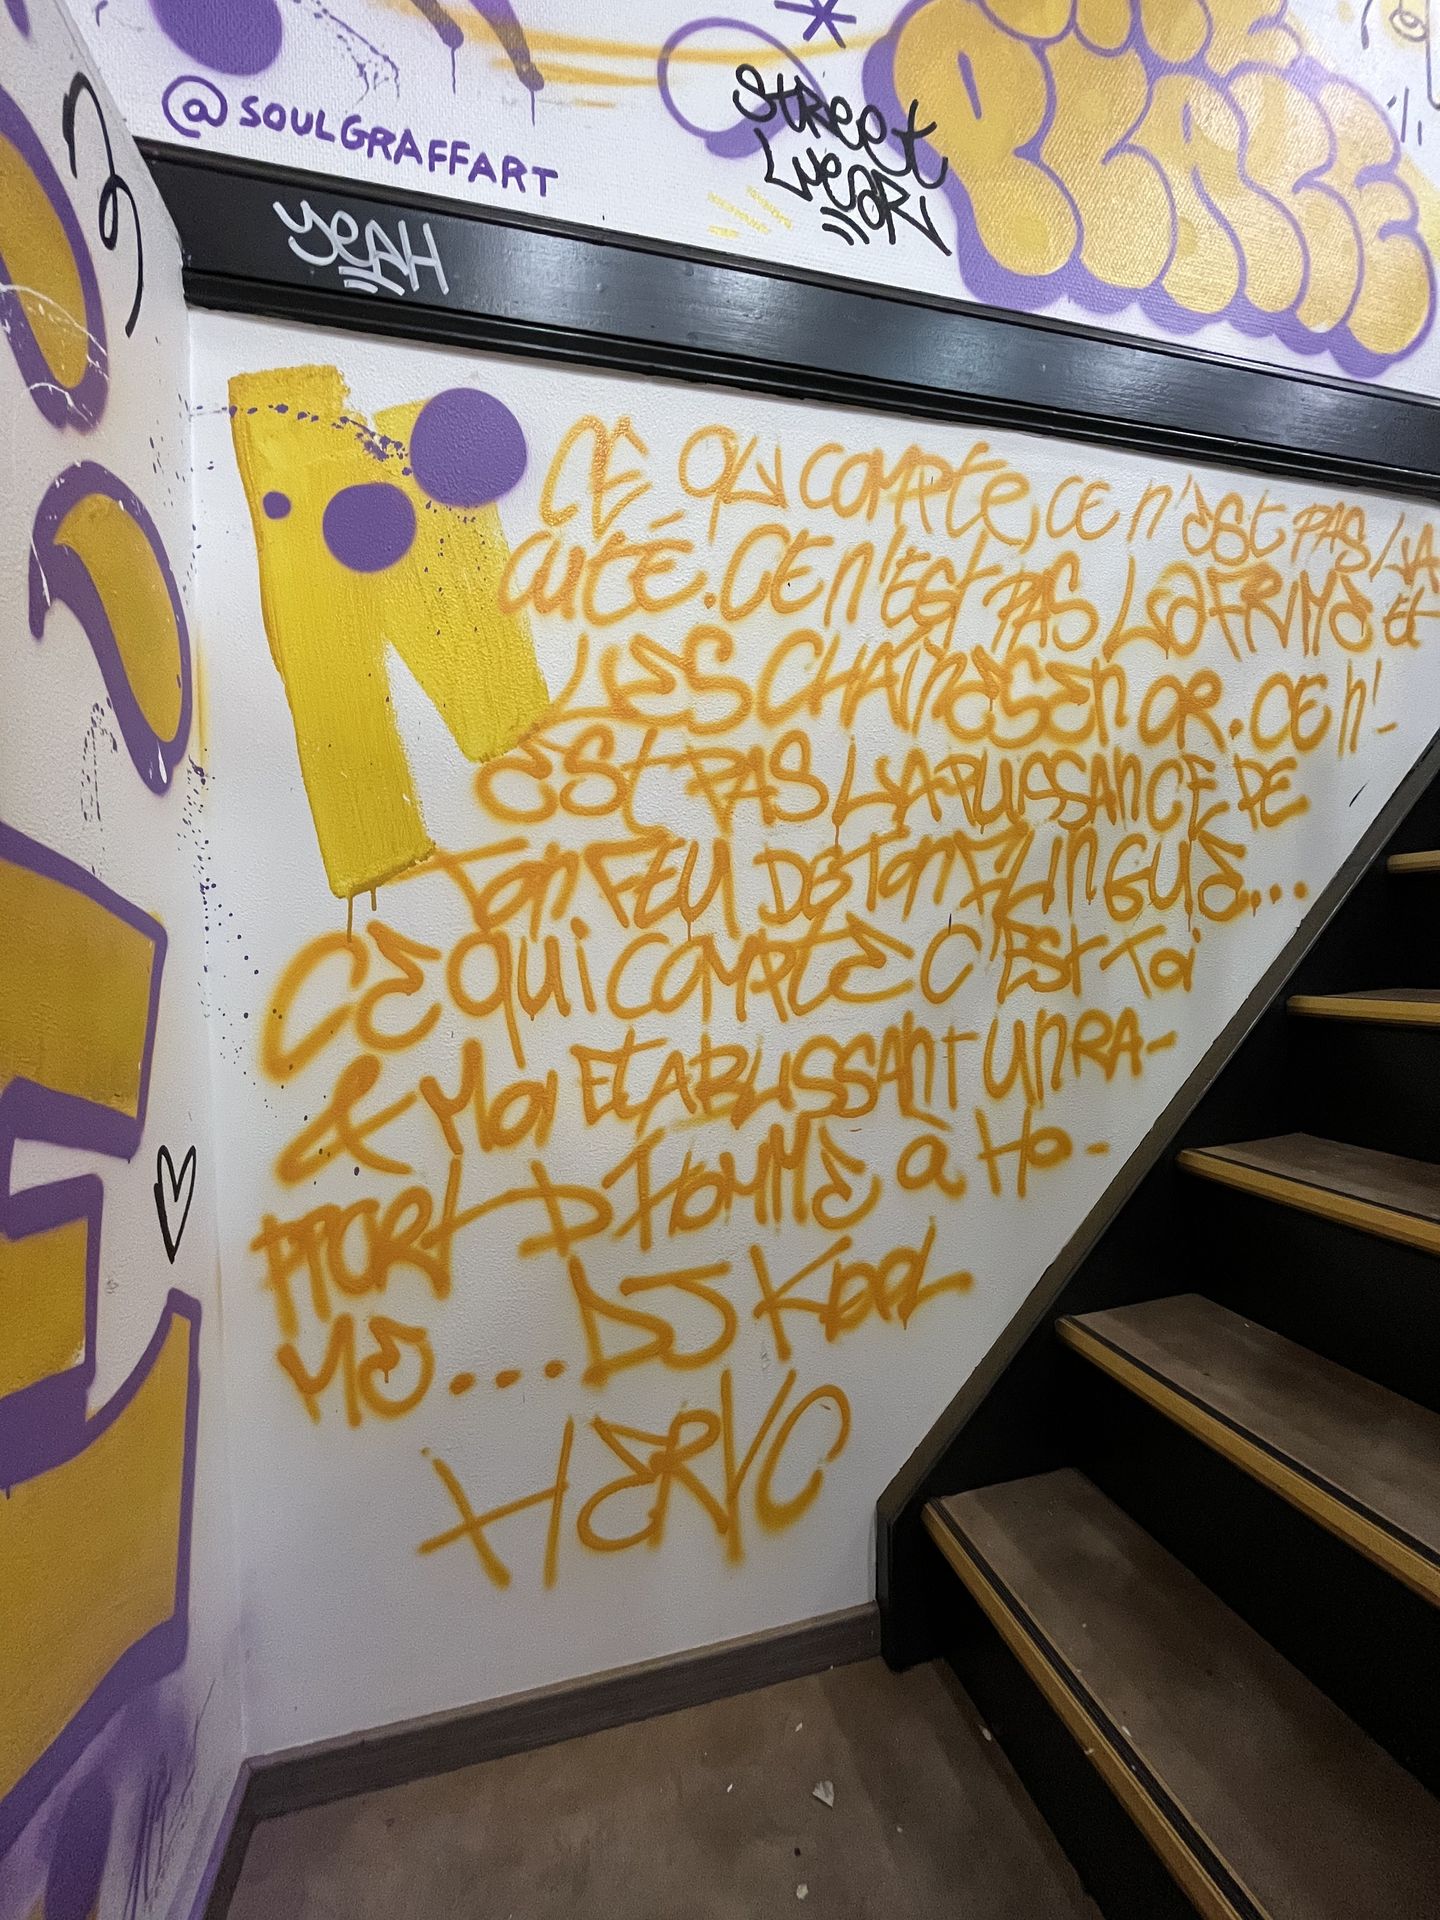 @SOULGRAFFART
STREET
LYEAR
PLACE
YEAH
CE QUI COMPTE, CE N'EST PAS LA
CUITÉ. CE N'EST PAS LA FRIME ET
LES CHAINES EN OR. CE N'-
EST PAS LA PUISSANCE DE
TON FEU DE TON FLINGUE...
CE QUI COMPTE C'EST TOI
& MOI ETABLISSANT UN RA-
PPORT D'HOMME A HO-
ME... DJ KOOL
HERC